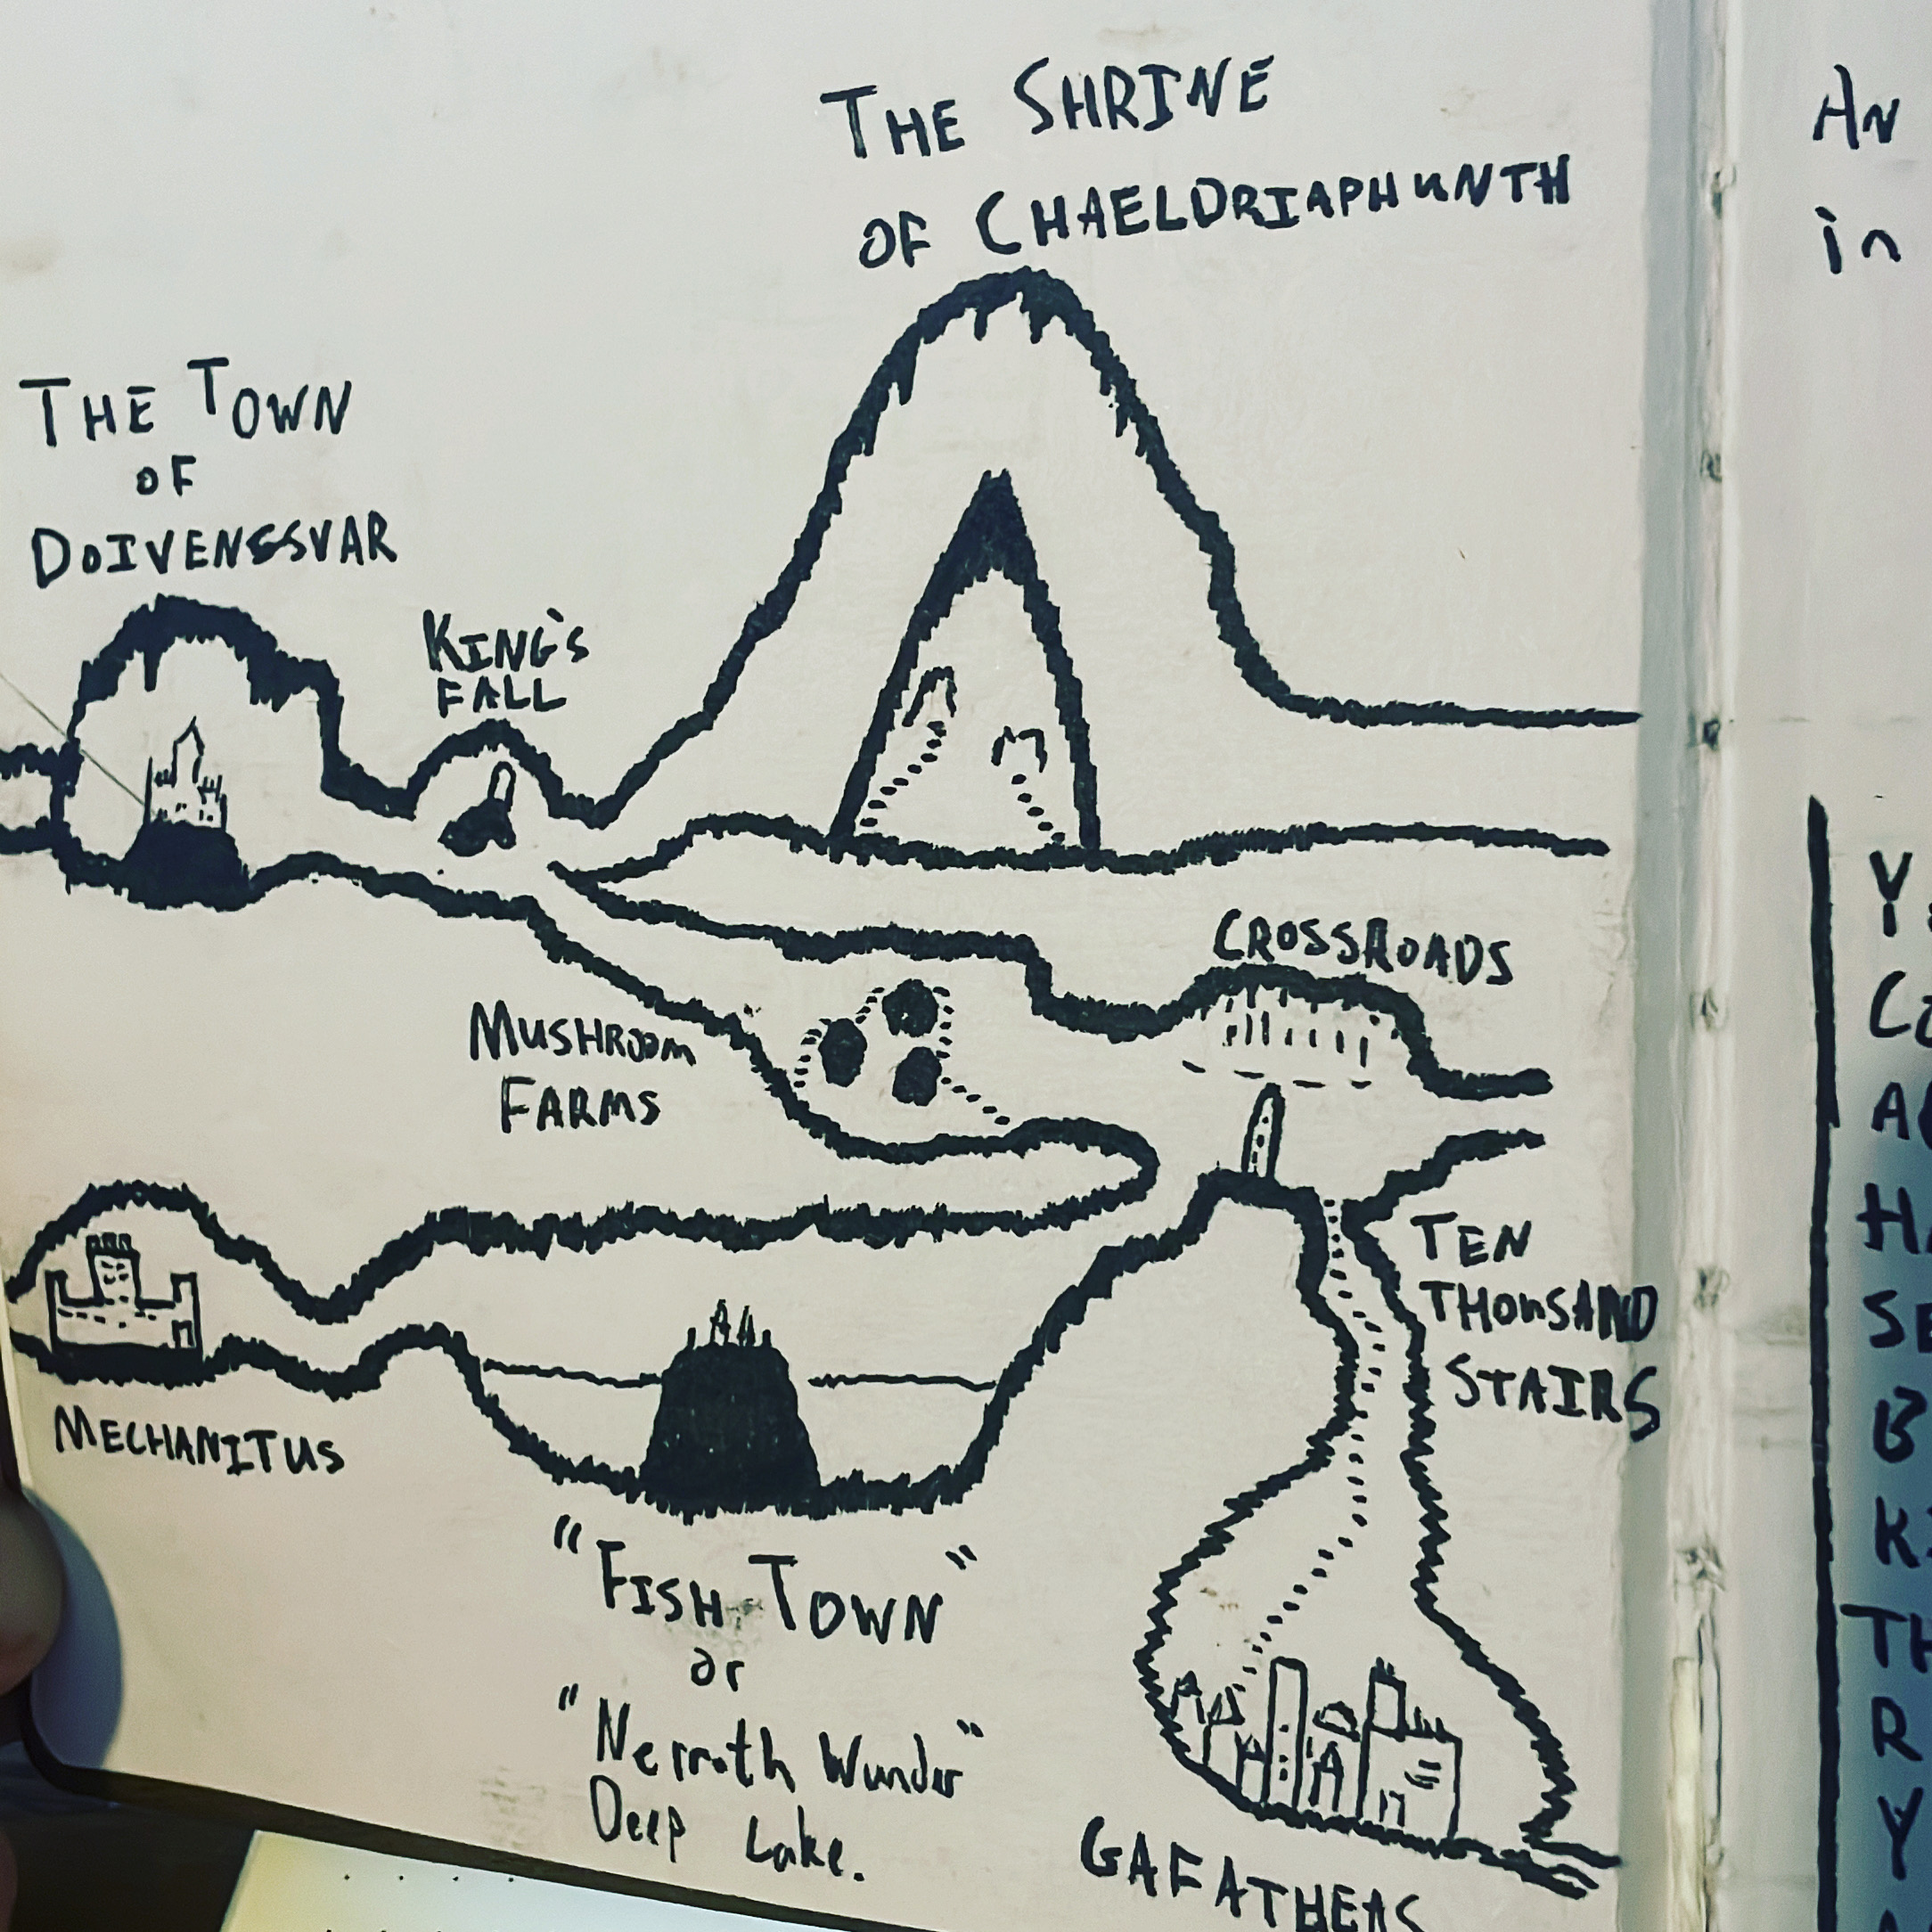 THE SHRINE
OF CHAELDRIAPHUNTH
THE TOWN
OF
DOIVENSSVAR
KING'S
FALL
CROSSROADS
MUSHROOM
FARMS
TEN
THOUSAND
STAIRS
MECHANITUS
"FISH TOWN"
or
"Nerroth Wunder"
Deep Lake.
GAFATHEAS
An
in